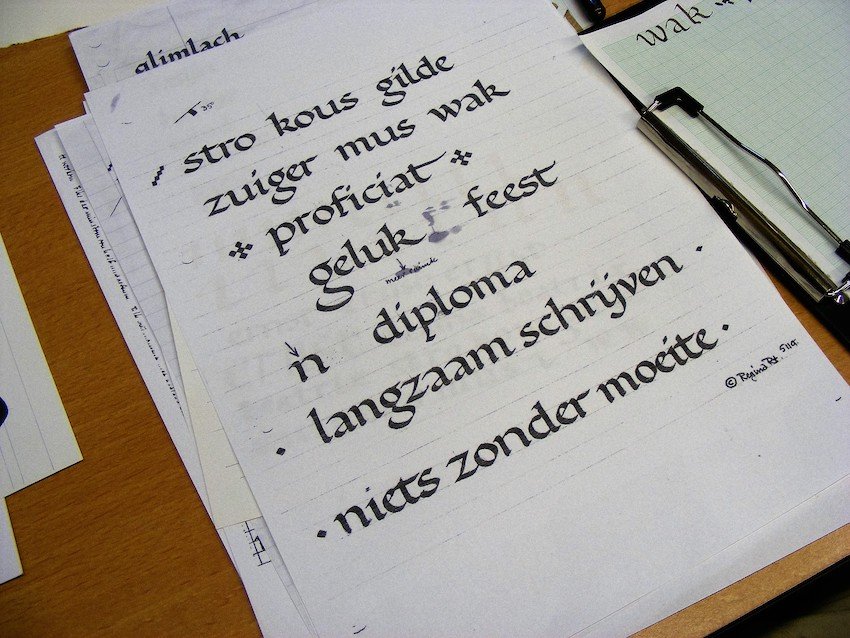 glimlach
wak
35°
stro kous gilde
zuiger mus wak
proficiat
geluk feest
meer ruimte
n diploma
langzaam schrijven
niets zonder moeite
©